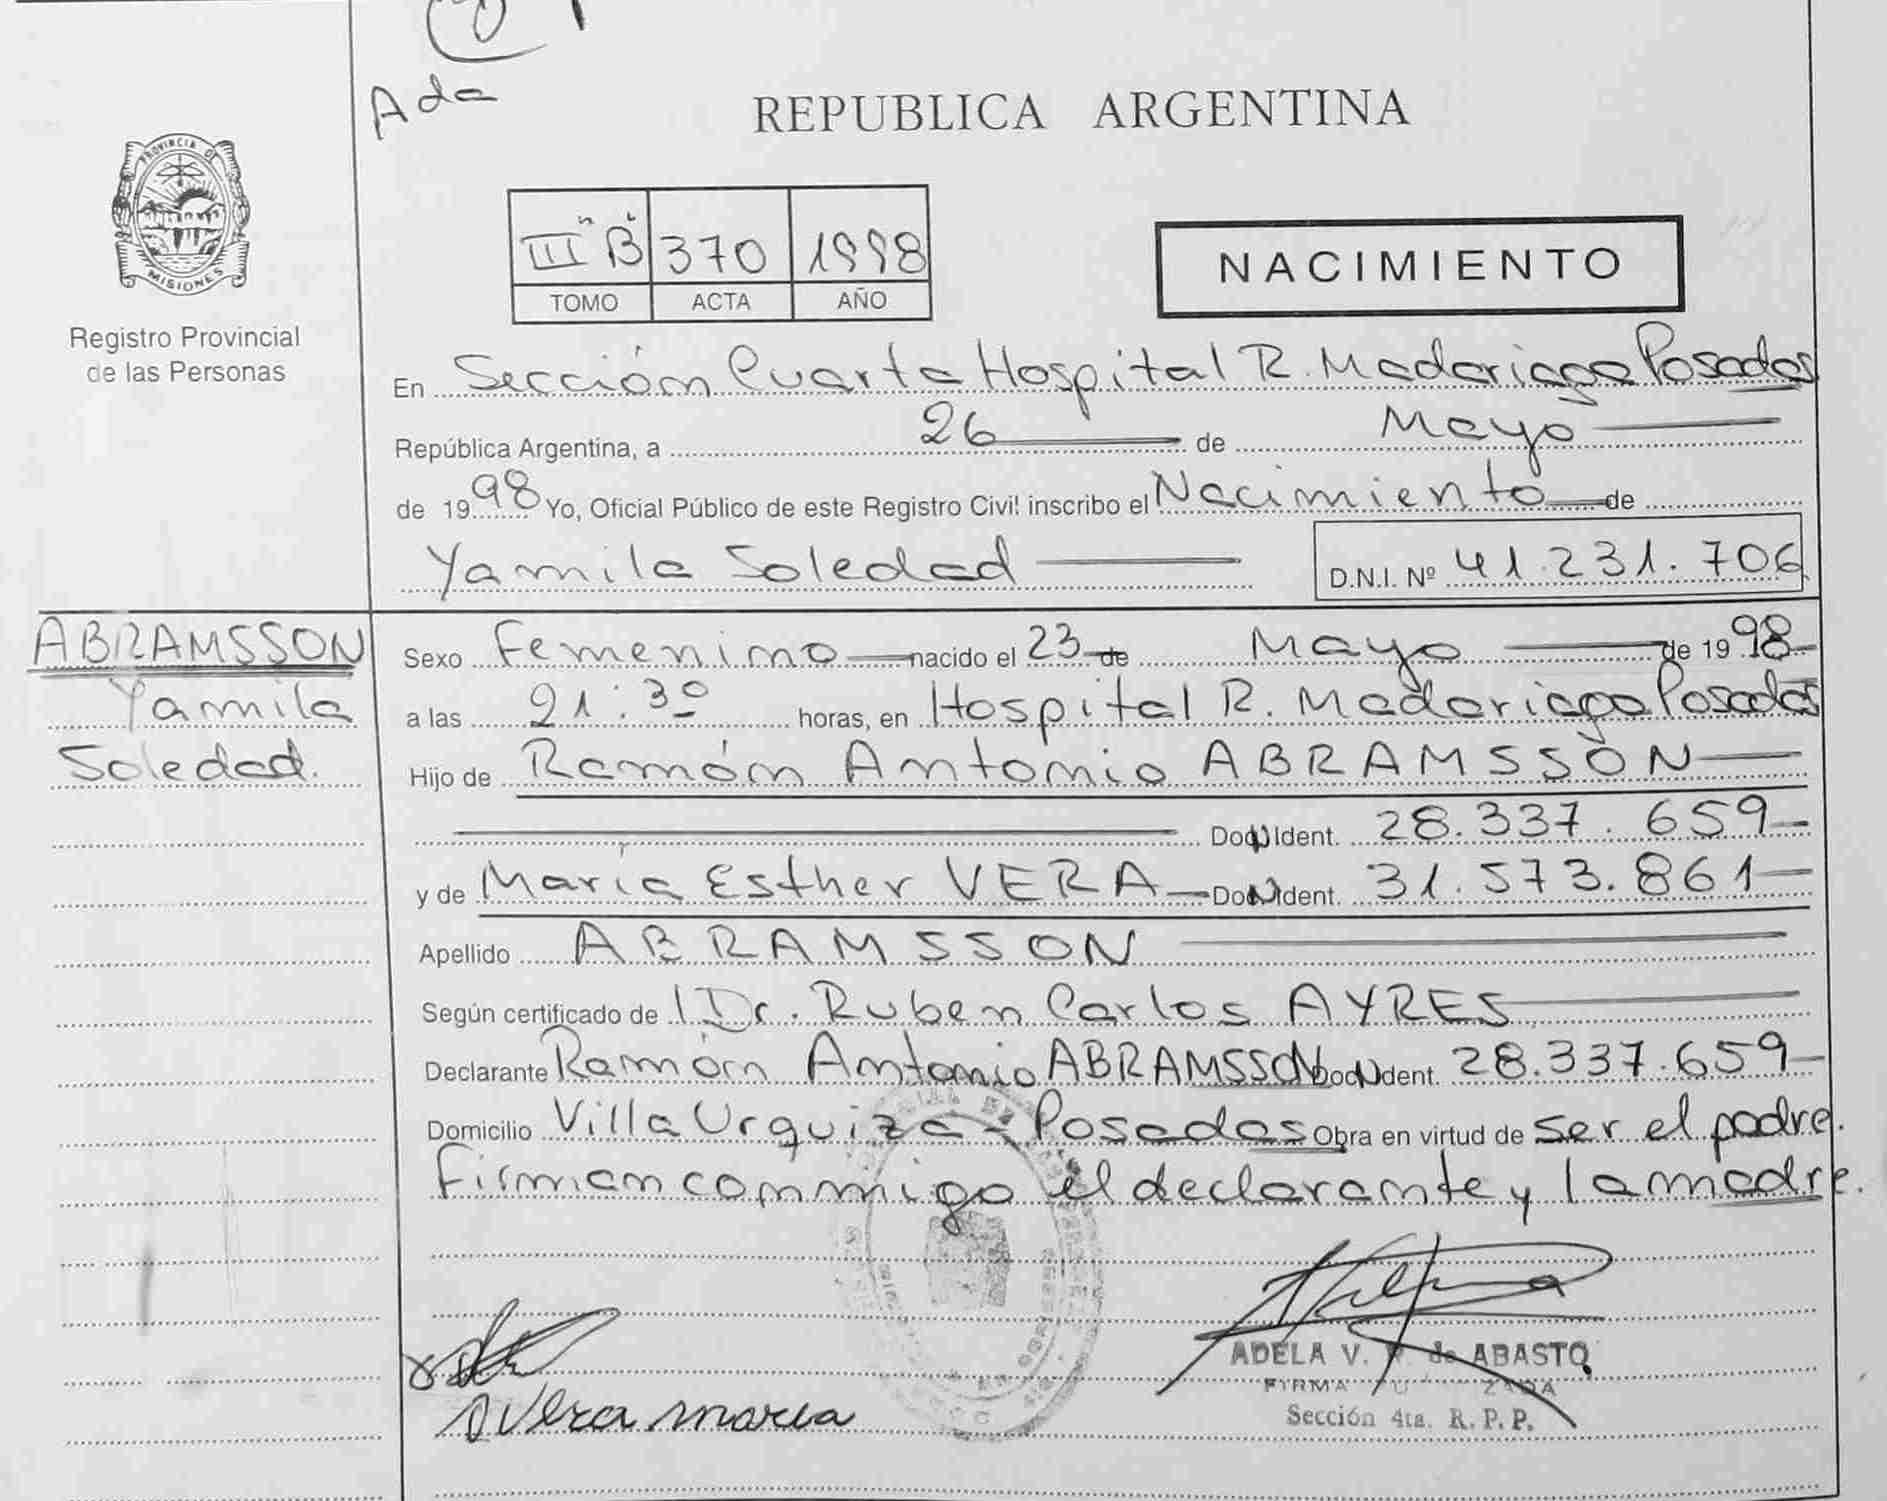 Ada
REPUBLICA ARGENTINA
PROVINCIA DE
MISIONES
Registro Provincial
de las Personas
III "B" 370 1998
TOMO ACTA AÑO
NACIMIENTO
En Sección Cuarta Hospital R. Madariaga Posadas
República Argentina, a 26 de Mayo
de 1998 Yo, Oficial Público de este Registro Civil inscribo el Nacimiento de
Yamila Soledad D.N.I. Nº 41.231.706
ABRAMSSON
Yamila
Soledad.
Sexo Femenino nacido el 23 de Mayo de 1998
a las 21:30 horas, en Hospital R. Madariaga Posadas
Hijo de Ramón Antonio ABRAMSSON
Doc. Ident. 28.337.659
y de María Esther VERA Doc. Ident. 31.573.861
Apellido ABRAMSSON
Según certificado de Dr. Ruben Carlos AYRES
Declarante Ramón Antonio ABRAMSSON Doc. Ident. 28.337.659
Domicilio Villa Urquiza - Posadas Obra en virtud de ser el padre.
Firman conmigo el declarante y la madre.
Vera maria
ADELA V. de ABASTO
FIRMA
Sección 4ta. R.P.P.